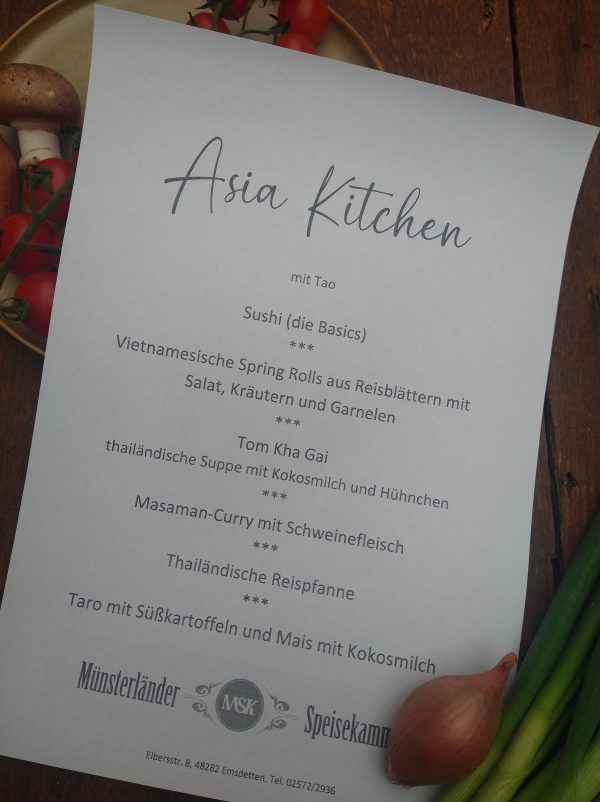 Asia Kitchen
mit Tao
Sushi (die Basics)
***
Vietnamesische Spring Rolls aus Reisblättern mit
Salat, Kräutern und Garnelen
***
Tom Kha Gai
thailändische Suppe mit Kokosmilch und Hühnchen
***
Masaman-Curry mit Schweinefleisch
***
Thailändische Reispfanne
***
Taro mit Süßkartoffeln und Mais mit Kokosmilch
Münsterländer MSK Speisekamm
Elbersstr. 8, 48282 Emsdetten, Tel. 02572/2936